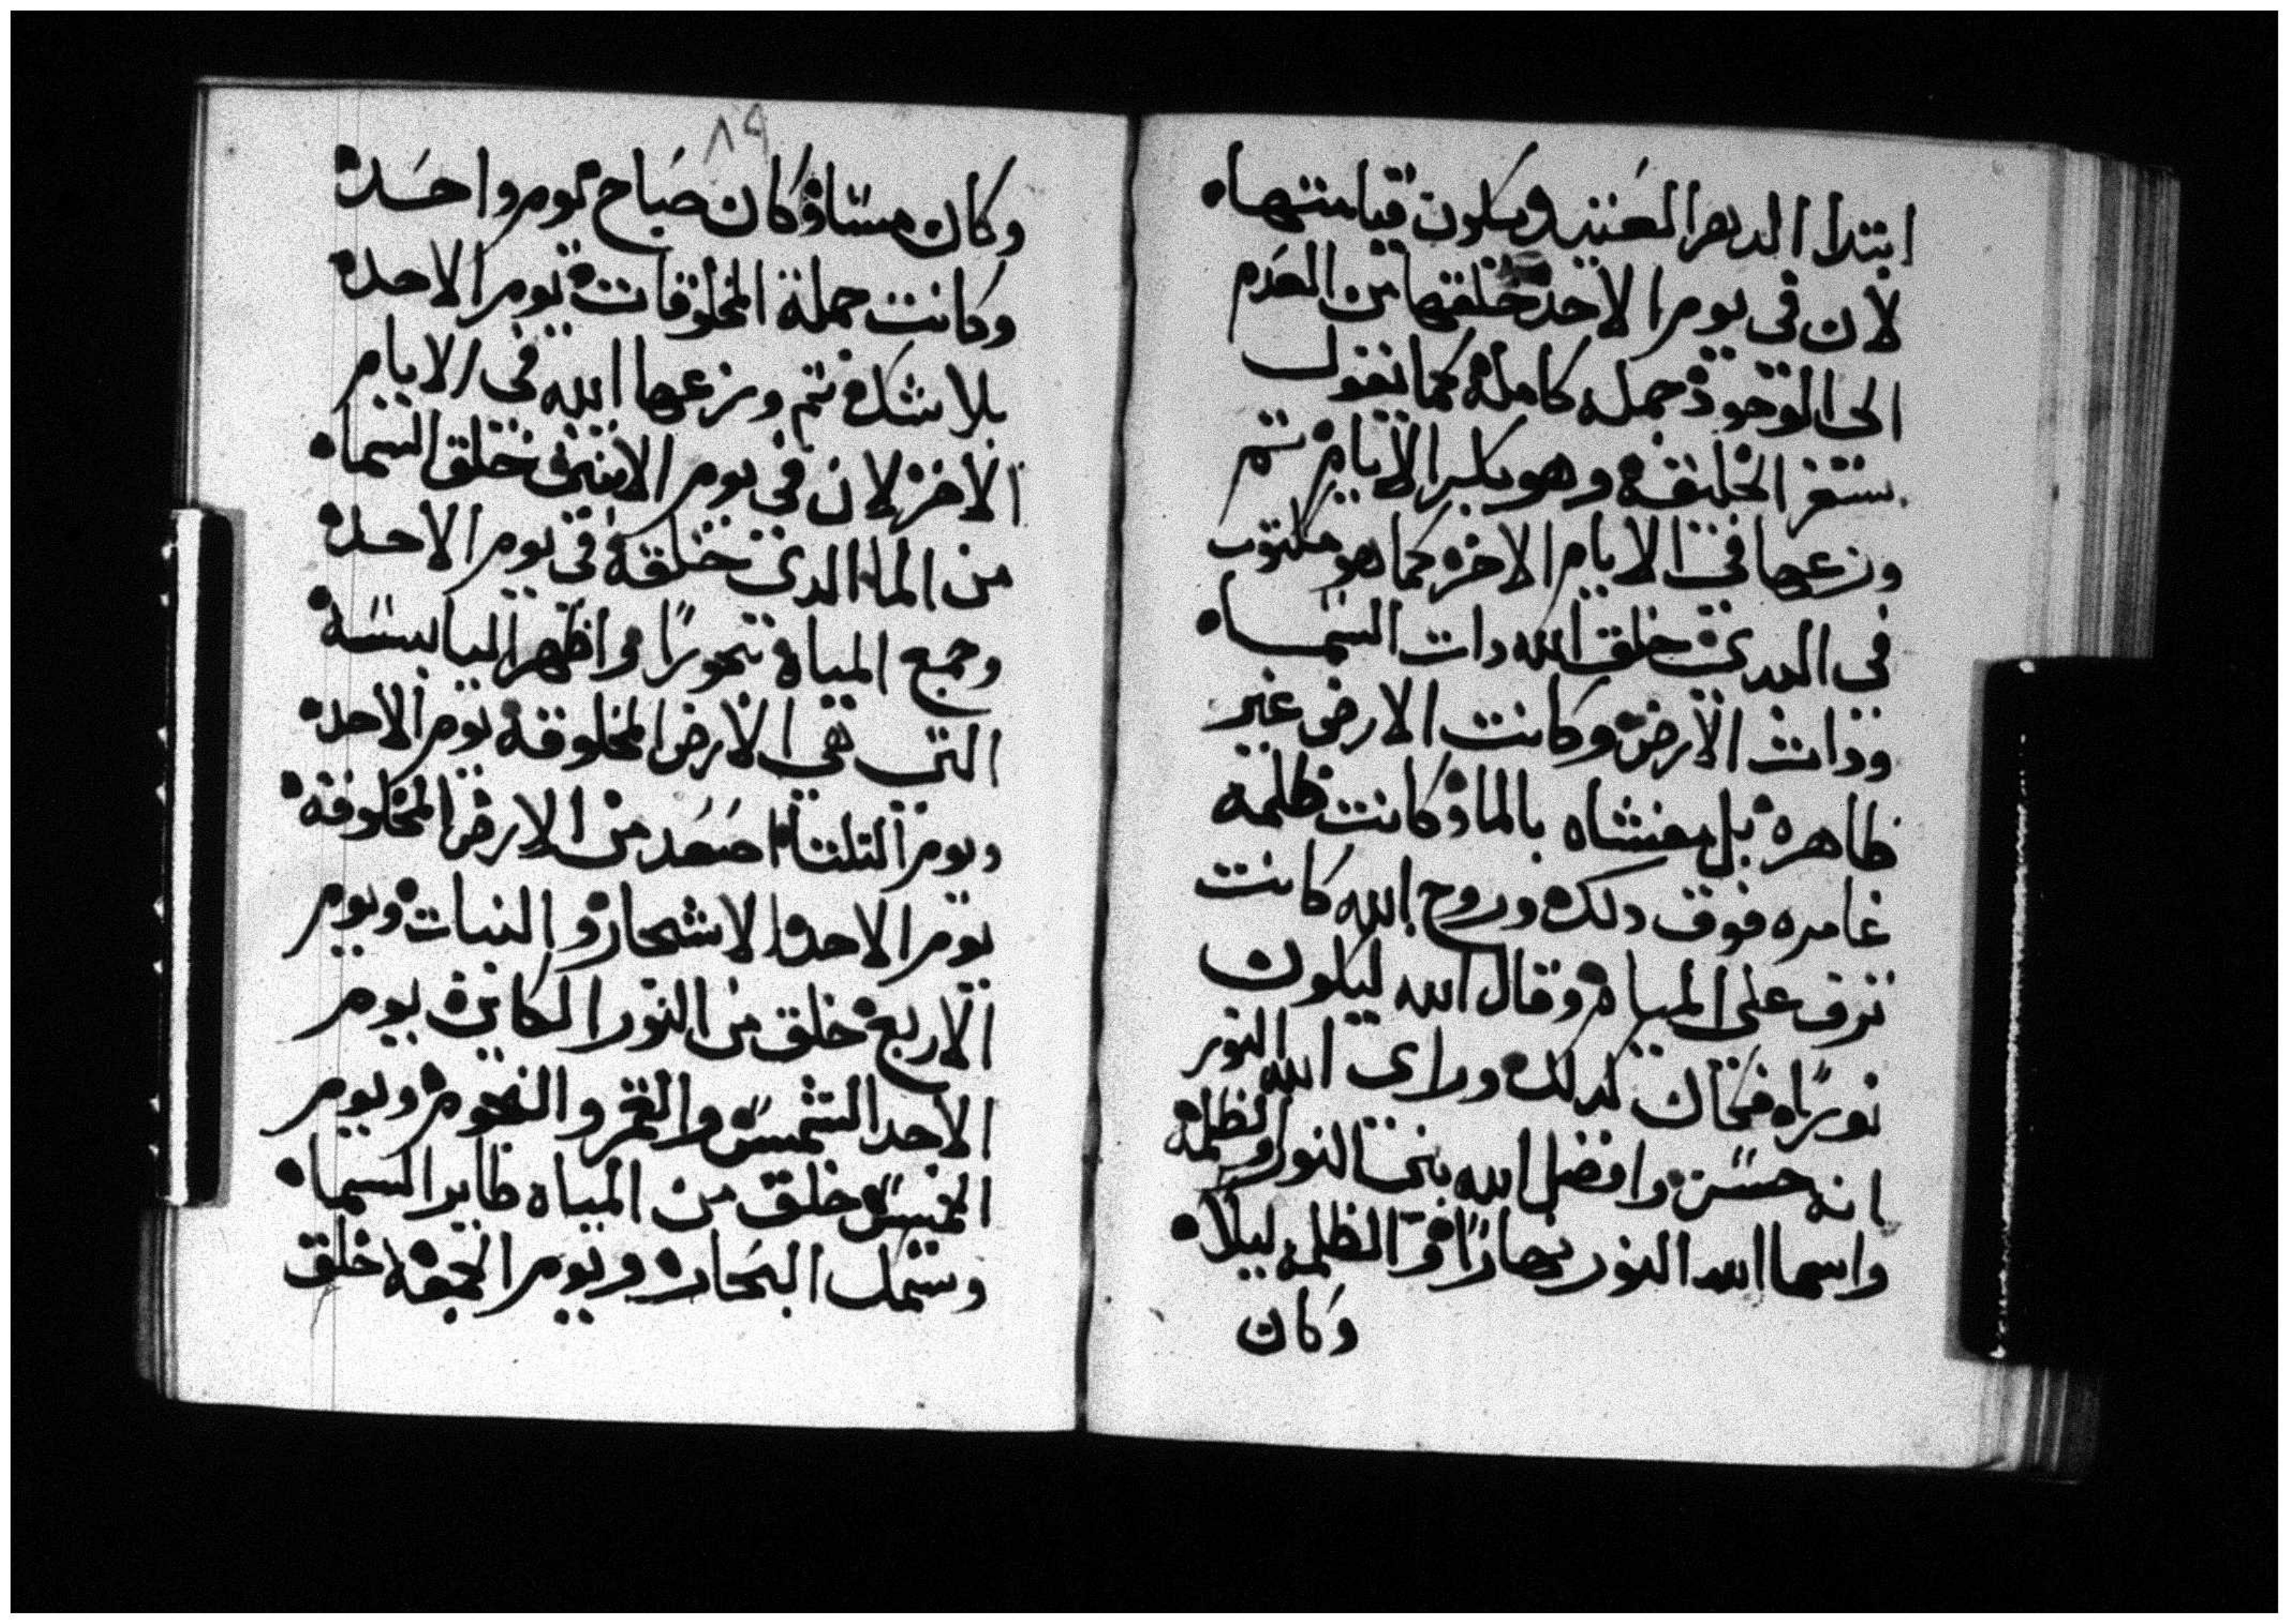 ابتدا الدهر العتيد ويكون قيامتها ه
لان في يوم الاحد خلقها من العدم
الى الوجود جمله كامله كما نقول
سفر الخليقه وهو بكر الايام تم
وزعها في الايام الاخره كما هو مكتوب
في البدي خلق الله دات السما ه
وذات الارض وكانت الارض غير
ظاهره بل مغشاه بالما وكانت ظلمه
غامره فوق دلك وروح الله كانت
ترف على المياه وقال الله ليكون
نورًا فكان كدلك وراى الله النور
انه حسن وافضل الله بين النور والظلمة
واسما الله النور نهارًا والظلمه ليلاً ه
وكان
٨٩
وكان مسا وكان صباح يوم واحد ه
وكانت جملة المخلوقات يوم الاحد ه
بلا شك تم وزعها الله في الايام
الاخر لان في يوم الاتنين خلق السما ه
من الما الدي خلقه في يوم الاحد ه
وجمع المياه بحورًا واظهر اليابسة ه
التي هي الارض المخلوقه يوم الاحد ه
ويوم التلتا اصعد من الارض المخلوقه ه
يوم الاحد الاشجار والنبات ويوم
الاربع خلق من النور الكاين يوم
الاحد الشمس والقمر والنجوم ويوم
الخميس خلق من المياه طاير السما ه
وسمك البحار ويوم الجمعه خلق